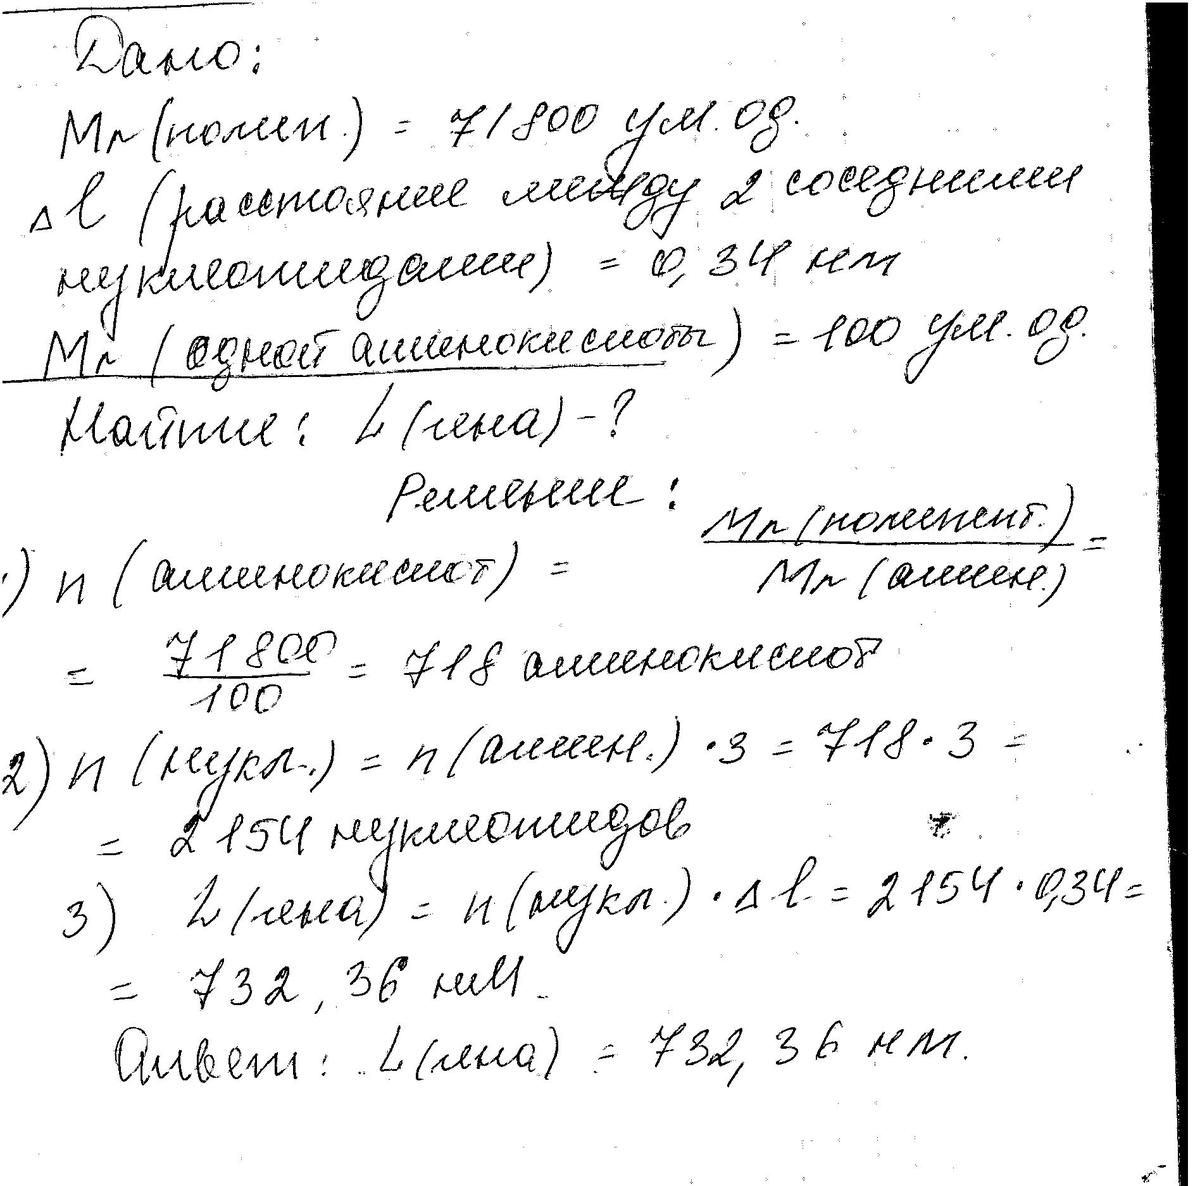 Дано:
Mr (полип.) = 71800 ум. од.
Δl (расстояние между 2 соседними
нуклеотидами) = 0,34 нм
Mr (одной аминокислоты) = 100 ум. од.
Найти: L (гена) - ?
Решение:
1) n (аминокислот) = Mr (полипепт.) / Mr (амин.) =
= 71800 / 100 = 718 аминокислот
2) n (нукл.) = n (амин.) · 3 = 718 · 3 =
= 2154 нуклеотидов
3) L (гена) = n (нукл.) · Δl = 2154 · 0,34 =
= 732,36 нм.
Ответ: L (гена) = 732,36 нм.